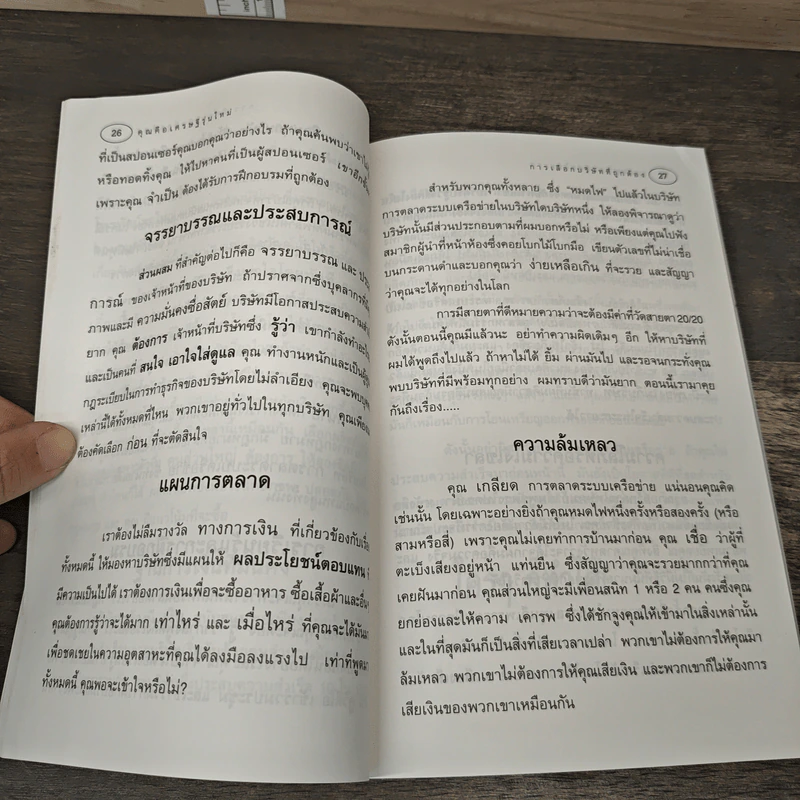 26 คุณคือเศรษฐีรุ่นใหม่
ที่เป็นสปอนเซอร์คุณบอกคุณว่าอย่างไร ถ้าคุณค้นพบว่าเขา
หรือทอดทิ้งคุณ ให้ไปหาคนที่เป็นผู้สปอนเซอร์ เขาอีกชั้น
เพราะคุณ จำเป็น ต้องได้รับการฝึกอบรมที่ถูกต้อง
จรรยาบรรณและประสบการณ์
ส่วนผสม ที่สำคัญต่อไปก็คือ จรรยาบรรณ และ
การณ์ ของเจ้าหน้าที่ของบริษัท ถ้าปราศจากซึ่งบุคลากร
ภาพและมี ความมั่นคงซื่อสัตย์ บริษัทมีโอกาสประสบความ
ยาก คุณ ต้องการ เจ้าหน้าที่บริษัทซึ่ง รู้ว่า เขากำลังทำอะไร
และเป็นคนที่ สนใจ เอาใจใส่ดูแล คุณ ทำงานหนักและเป็น
กฎระเบียบในการทำธุรกิจของบริษัทโดยไม่ลำเอียง คุณจะพบ
เหล่านี้ได้ทั้งหมดที่ไหน พวกเขาอยู่ทั่วไปในทุกบริษัท คุณเพียง
ต้องคัดเลือก ก่อน ที่จะตัดสินใจ
แผนการตลาด
เราต้องไม่ลืมรางวัล ทางการเงิน ที่เกี่ยวข้องกับ
ทั้งหมดนี้ ให้มองหาบริษัทซึ่งมีแผนให้ ผลประโยชน์ตอบแทน
มีความเป็นไปได้ เราต้องการเงินเพื่อจะซื้ออาหาร ซื้อเสื้อผ้าและอื่น
คุณต้องการรู้ว่าจะได้มาก เท่าไหร่ และ เมื่อไหร่ ที่คุณจะได้มัน
เพื่อชดเชยในความอุตสาหะที่คุณได้ลงมือลงแรงไป เท่าที่พูดมา
ทั้งหมดนี้ คุณพอจะเข้าใจหรือไม่?
การเลือกบริษัทที่ถูกต้อง 27
สำหรับพวกคุณทั้งหลาย ซึ่ง "หมดไฟ" ไปแล้วในบริษัท
การตลาดระบบเครือข่ายในบริษัทใดบริษัทหนึ่ง ให้ลองพิจารณาดูว่า
บริษัทนั้นมีส่วนประกอบตามที่ผมบอกหรือไม่ หรือเพียงแต่คุณไปฟัง
สมาชิกผู้นำที่หน้าห้องซึ่งคอยโบกไม้โบกมือ เขียนตัวเลขที่ไม่น่าเชื่อ
บนกระดานดำและบอกคุณว่า ง่ายเหลือเกิน ที่จะรวย และสัญญา
ว่าคุณจะได้ทุกอย่างในโลก
การมีสายตาที่ดีหมายความว่าจะต้องมีค่าที่วัดสายตา 20/20
ดังนั้นตอนนี้คุณมีแล้วนะ อย่าทำความผิดเดิมๆ อีก ให้หาบริษัทที่
ผมได้พูดถึงไปแล้ว ถ้าหาไม่ได้ ยิ้ม ผ่านมันไป และรอจนกระทั่งคุณ
พบบริษัทที่มีพร้อมทุกอย่าง ผมทราบดีว่ามันยาก ตอนนี้เรามาคุย
กันถึงเรื่อง.....
ความล้มเหลว
คุณ เกลียด การตลาดระบบเครือข่าย แน่นอนคุณคิด
เช่นนั้น โดยเฉพาะอย่างยิ่งถ้าคุณหมดไฟหนึ่งครั้งหรือสองครั้ง (หรือ
สามหรือสี่) เพราะคุณไม่เคยทำการบ้านมาก่อน คุณ เชื่อ ว่าผู้ที่
ตะเบ็งเสียงอยู่หน้า แท่นยืน ซึ่งสัญญาว่าคุณจะรวยมากกว่าที่คุณ
เคยฝันมาก่อน คุณส่วนใหญ่จะมีเพื่อนสนิท 1 หรือ 2 คน คนซึ่งคุณ
ยกย่องและให้ความ เคารพ ซึ่งได้ชักจูงคุณให้เข้ามาในสิ่งเหล่านั้น
และในที่สุดมันก็เป็นสิ่งที่เสียเวลาเปล่า พวกเขาไม่ต้องการให้คุณมา
ล้มเหลว พวกเขาไม่ต้องการให้คุณเสียเงิน และพวกเขาก็ไม่ต้องการ
เสียเงินของพวกเขาเหมือนกัน